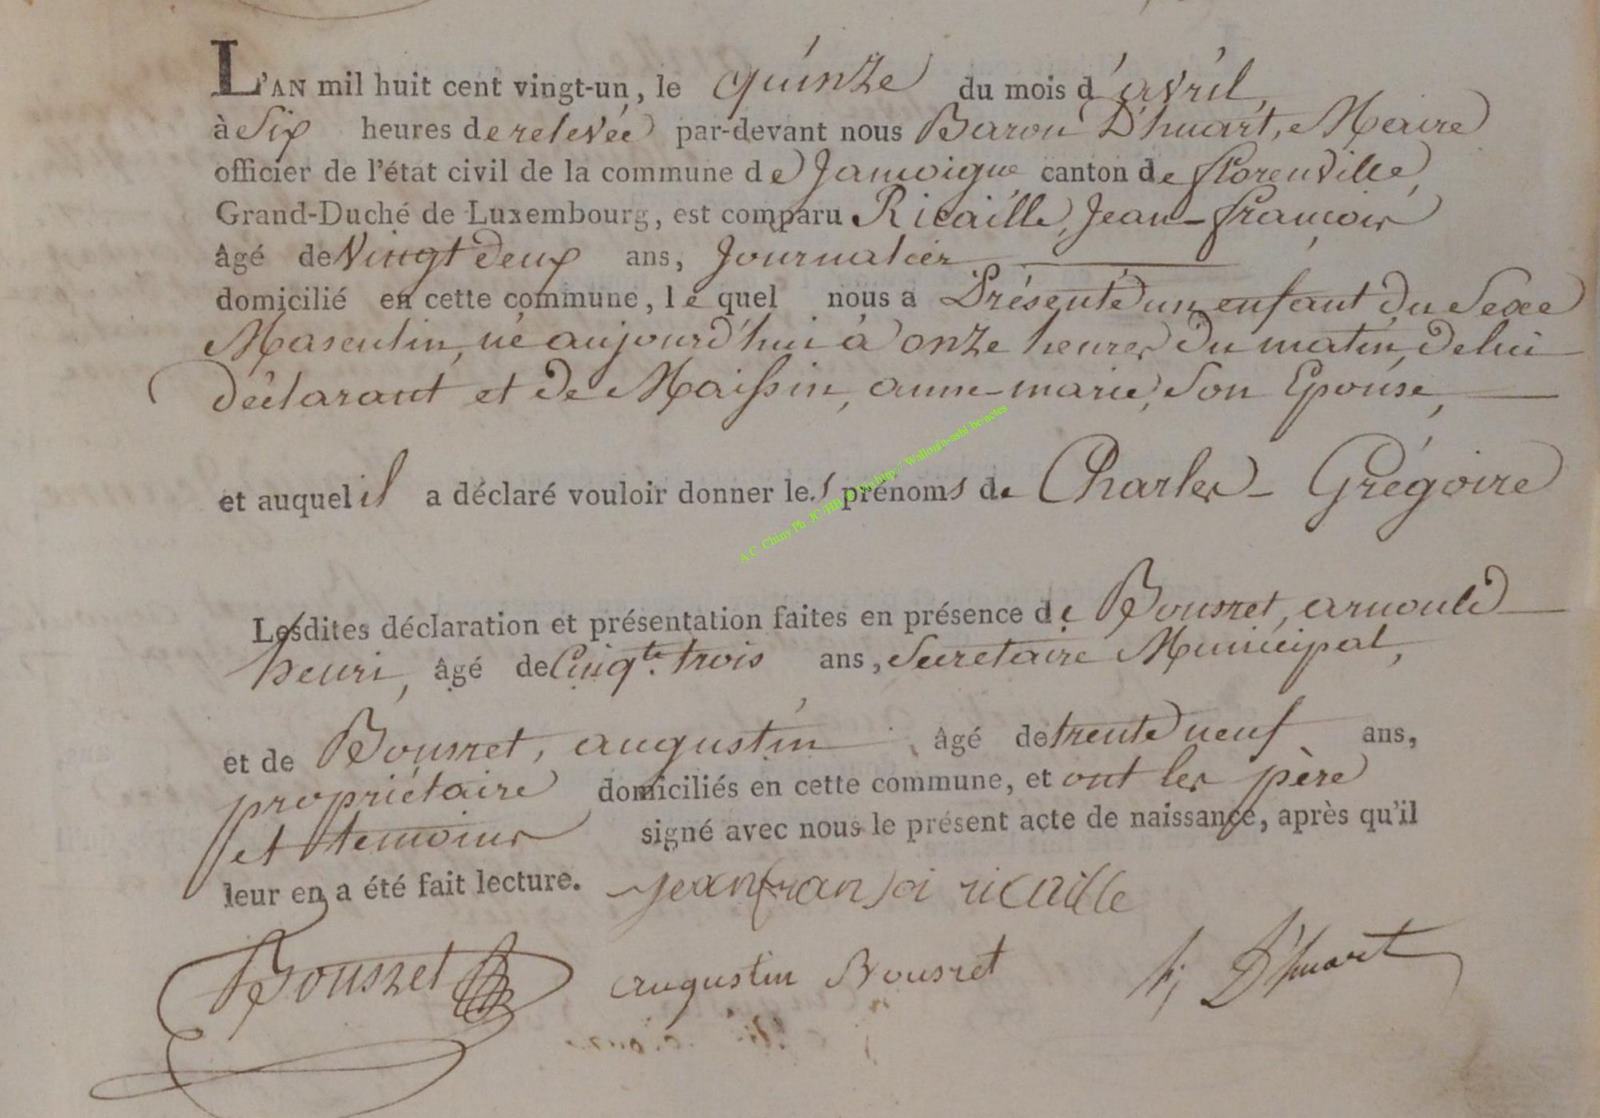 L'AN mil huit cent vingt-un, le quinze du mois d'avril,
à Six heures de relevée par-devant nous Baron D'huart, Maire
officier de l'état civil de la commune de Jamoigne canton de florenville,
Grand-Duché de Luxembourg, est comparu Ricaille, Jean-françois
âgé de Vingt deux ans, Journalier
domicilié en cette commune, le quel nous a Présenté un enfant du Sexe
Masculin, né aujourd'hui à onze heures du matin, de lui
déclarant et de Maissin, anne-marie, Son Epouse,
et auquel il a déclaré vouloir donner les prénoms de Charles-Grégoire
Lesdites déclaration et présentation faites en présence de Bousret, arnould
henri, âgé de Cinqte. trois ans, Secretaire Municipal,
et de Bousret, augustin, âgé de trente neuf ans,
propriétaire domiciliés en cette commune, et ont les père
et temoins signé avec nous le présent acte de naissance, après qu'il
leur en a été fait lecture. jean fransoi ricaille
Bousret augustin Bousret h; D'huart